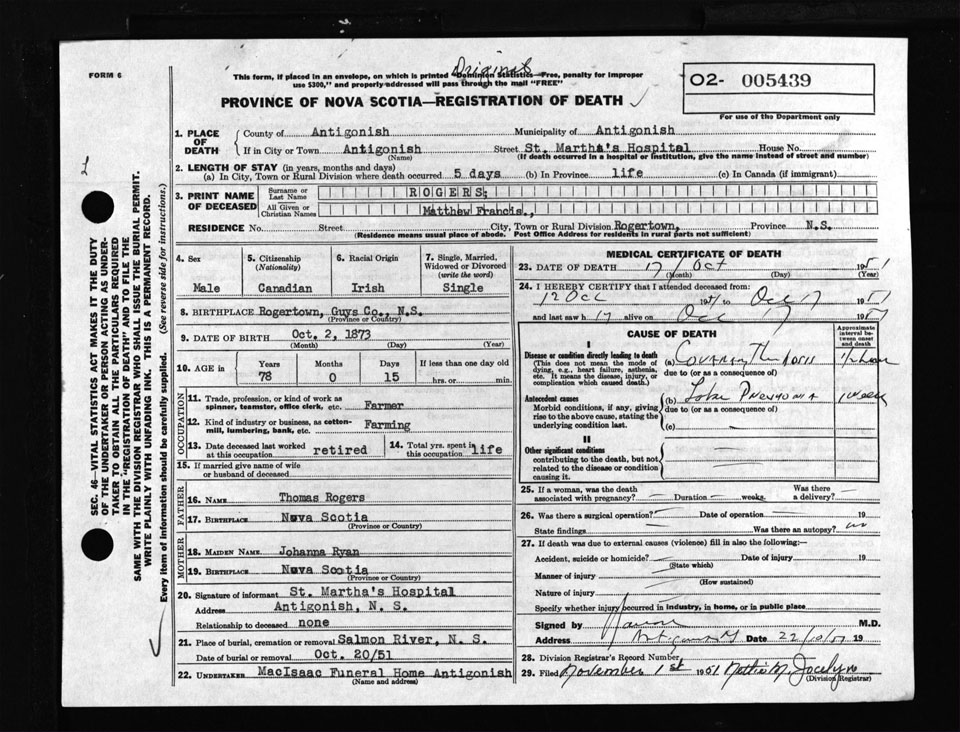 Original
FORM 6
This form, if placed in an envelope, on which is printed "Dominion Statistics—Free, penalty for improper
use $300," and properly addressed will pass through the mail "FREE"
O2- 005439
PROVINCE OF NOVA SCOTIA—REGISTRATION OF DEATH ✓
For use of the Department only
1. PLACE OF DEATH
County of Antigonish Municipality of Antigonish
If in City or Town Antigonish Street St. Martha's Hospital House No.
(Name) (If death occurred in a hospital or institution, give the name instead of street and number)
2. LENGTH OF STAY (in years, months and days)
(a) In City, Town or Rural Division where death occurred 5 days (b) In Province life (c) In Canada (if immigrant)
3. PRINT NAME OF DECEASED
Surname or Last Name ROGERS;
All Given or Christian Names Matthew Francis.,
RESIDENCE No. Street City, Town or Rural Division Rogertown, Province N.S.
(Residence means usual place of abode. Post Office Address for residents in rural parts not sufficient)
4. Sex Male
5. Citizenship (Nationality) Canadian
6. Racial Origin Irish
7. Single, Married, Widowed or Divorced (write the word) Single
8. BIRTHPLACE Rogertown, Guys Co., N.S.
(Province or Country)
9. DATE OF BIRTH Oct. 2, 1873
(Month) (Day) (Year)
10. AGE in Years 78 Months 0 Days 15 If less than one day old hrs. or min.
OCCUPATION
11. Trade, profession, or kind of work as
spinner, teamster, office clerk, etc. Farmer
12. Kind of industry or business, as cotton-
mill, lumbering, bank, etc. Farming
13. Date deceased last worked at this occupation retired
14. Total yrs. spent in this occupation life
15. If married give name of wife
or husband of deceased
FATHER
16. NAME Thomas Rogers
17. BIRTHPLACE Nova Scotia
(Province or Country)
MOTHER
18. MAIDEN NAME Johanna Ryan
19. BIRTHPLACE Nova Scotia
(Province or Country)
20. Signature of informant St. Martha's Hospital
Address Antigonish, N. S.
Relationship to deceased none
21. Place of burial, cremation or removal Salmon River, N. S.
Date of burial or removal Oct. 20/51
22. UNDERTAKER MacIsaac Funeral Home Antigonish
(Name and address)
MEDICAL CERTIFICATE OF DEATH
23. DATE OF DEATH 17 Oct 1951
(Month) (Day) (Year)
24. I HEREBY CERTIFY that I attended deceased from:
12 Oct 1951 to Oct 17 1951
and last saw h alive on Oct 17 1951
CAUSE OF DEATH
Approximate interval between onset and death
I
Disease or condition directly leading to death
(This does not mean the mode of
dying, e.g., heart failure, asthenia,
etc. It means the disease, injury, or
complication which caused death.)
(a) 1/2 hour
due to (or as a consequence of)
Antecedent causes
Morbid conditions, if any, giving
rise to the above cause, stating the
underlying condition last.
(b) Lobar Pneumonia 1 week
due to (or as a consequence of)
(c)
II
Other significant conditions
contributing to the death, but not
related to the disease or condition
causing it.
25. If a woman, was the death
associated with pregnancy? — Duration — weeks. Was there a delivery? —
26. Was there a surgical operation? — Date of operation — 19
State findings — Was there an autopsy? no
27. If death was due to external causes (violence) fill in also the following:—
Accident, suicide or homicide? Date of injury 19
(State which)
Manner of injury
(How sustained)
Nature of injury
Specify whether injury occurred in industry, in home, or in public place
Signed by M.D.
Address Antigonish Date 22/10/51 19
28. Division Registrar's Record Number
29. Filed November 1st 1951 Nettie M. Jocelyn
(Division Registrar)
SEC. 46—VITAL STATISTICS ACT MAKES IT THE DUTY
OF THE UNDERTAKER OR PERSON ACTING AS UNDER-
TAKER TO OBTAIN ALL THE PARTICULARS REQUIRED
IN THE "REGISTRATION OF DEATH" AND TO FILE THE
SAME WITH THE DIVISION REGISTRAR WHO SHALL ISSUE THE BURIAL PERMIT.
WRITE PLAINLY WITH UNFADING INK. THIS IS A PERMANENT RECORD.
Every item of information should be carefully supplied. (See reverse side for instructions.)